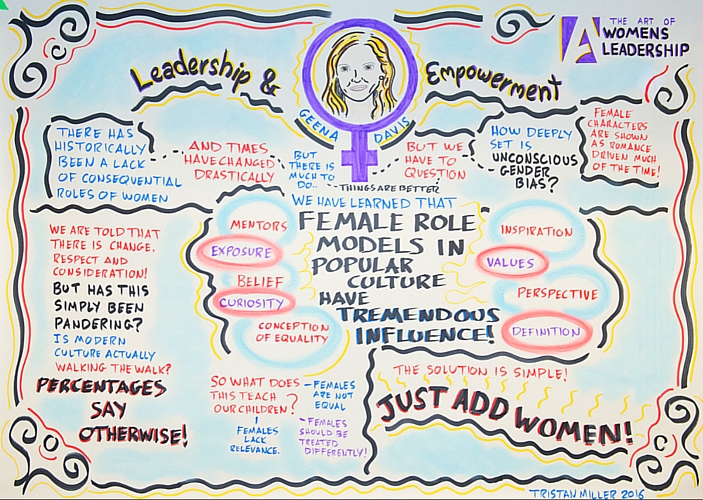 Leadership & Empowerment
GEENA DAVIS
THE ART OF
WOMENS
LEADERSHIP
THERE HAS
HISTORICALLY
BEEN A LACK
OF CONSEQUENTIAL
ROLES OF WOMEN
AND TIMES
HAVE CHANGED
DRASTICALLY
BUT
THERE IS
MUCH TO
DO..
THINGS ARE BETTER
BUT WE
HAVE TO
QUESTION
HOW DEEPLY
SET IS
UNCONSCIOUS
GENDER
BIAS?
FEMALE
CHARACTERS
ARE SHOWN
AS ROMANCE
DRIVEN MUCH
OF THE TIME!
WE ARE TOLD THAT
THERE IS CHANGE,
RESPECT AND
CONSIDERATION!
BUT HAS THIS
SIMPLY BEEN
PANDERING?
IS MODERN
CULTURE ACTUALLY
WALKING THE WALK?
PERCENTAGES
SAY
OTHERWISE!
MENTORS
EXPOSURE
BELIEF
CURIOSITY
CONCEPTION
OF EQUALITY
WE HAVE LEARNED THAT
FEMALE ROLE
MODELS IN
POPULAR
CULTURE
HAVE
TREMENDOUS
INFLUENCE!
INSPIRATION
VALUES
PERSPECTIVE
DEFINITION
SO WHAT DOES
THIS TEACH
OUR CHILDREN?
FEMALES
LACK
RELEVANCE.
- FEMALES
ARE NOT
EQUAL
- FEMALES
SHOULD BE
TREATED
DIFFERENTLY!
THE SOLUTION IS SIMPLE!
JUST ADD WOMEN!
TRISTAN MILLER 2016